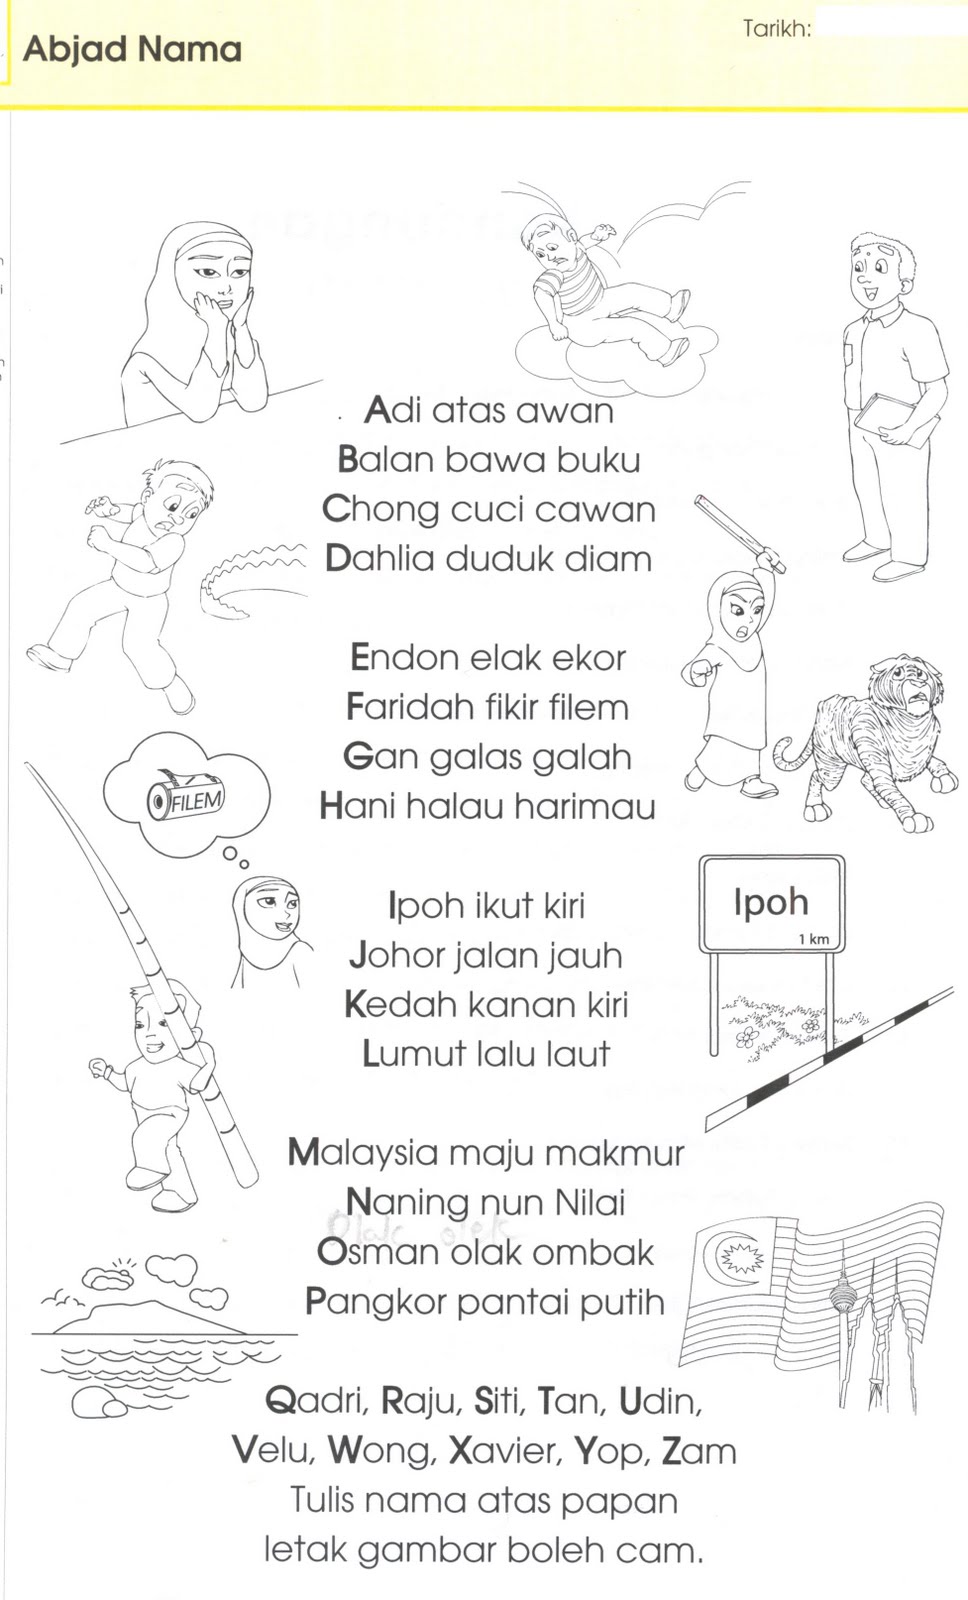 Tarikh:
Abjad Nama
Adi atas awan
Balan bawa buku
Chong cuci cawan
Dahlia duduk diam
Endon elak ekor
Faridah fikir filem
Gan galas galah
Hani halau harimau
FILEM
Ipoh ikut kiri
Johor jalan jauh
Kedah kanan kiri
Lumut lalu laut
Ipoh
1 km
Malaysia maju makmur
Naning nun Nilai
Osman olak ombak
Pangkor pantai putih
Qadri, Raju, Siti, Tan, Udin,
Velu, Wong, Xavier, Yop, Zam
Tulis nama atas papan
letak gambar boleh cam.